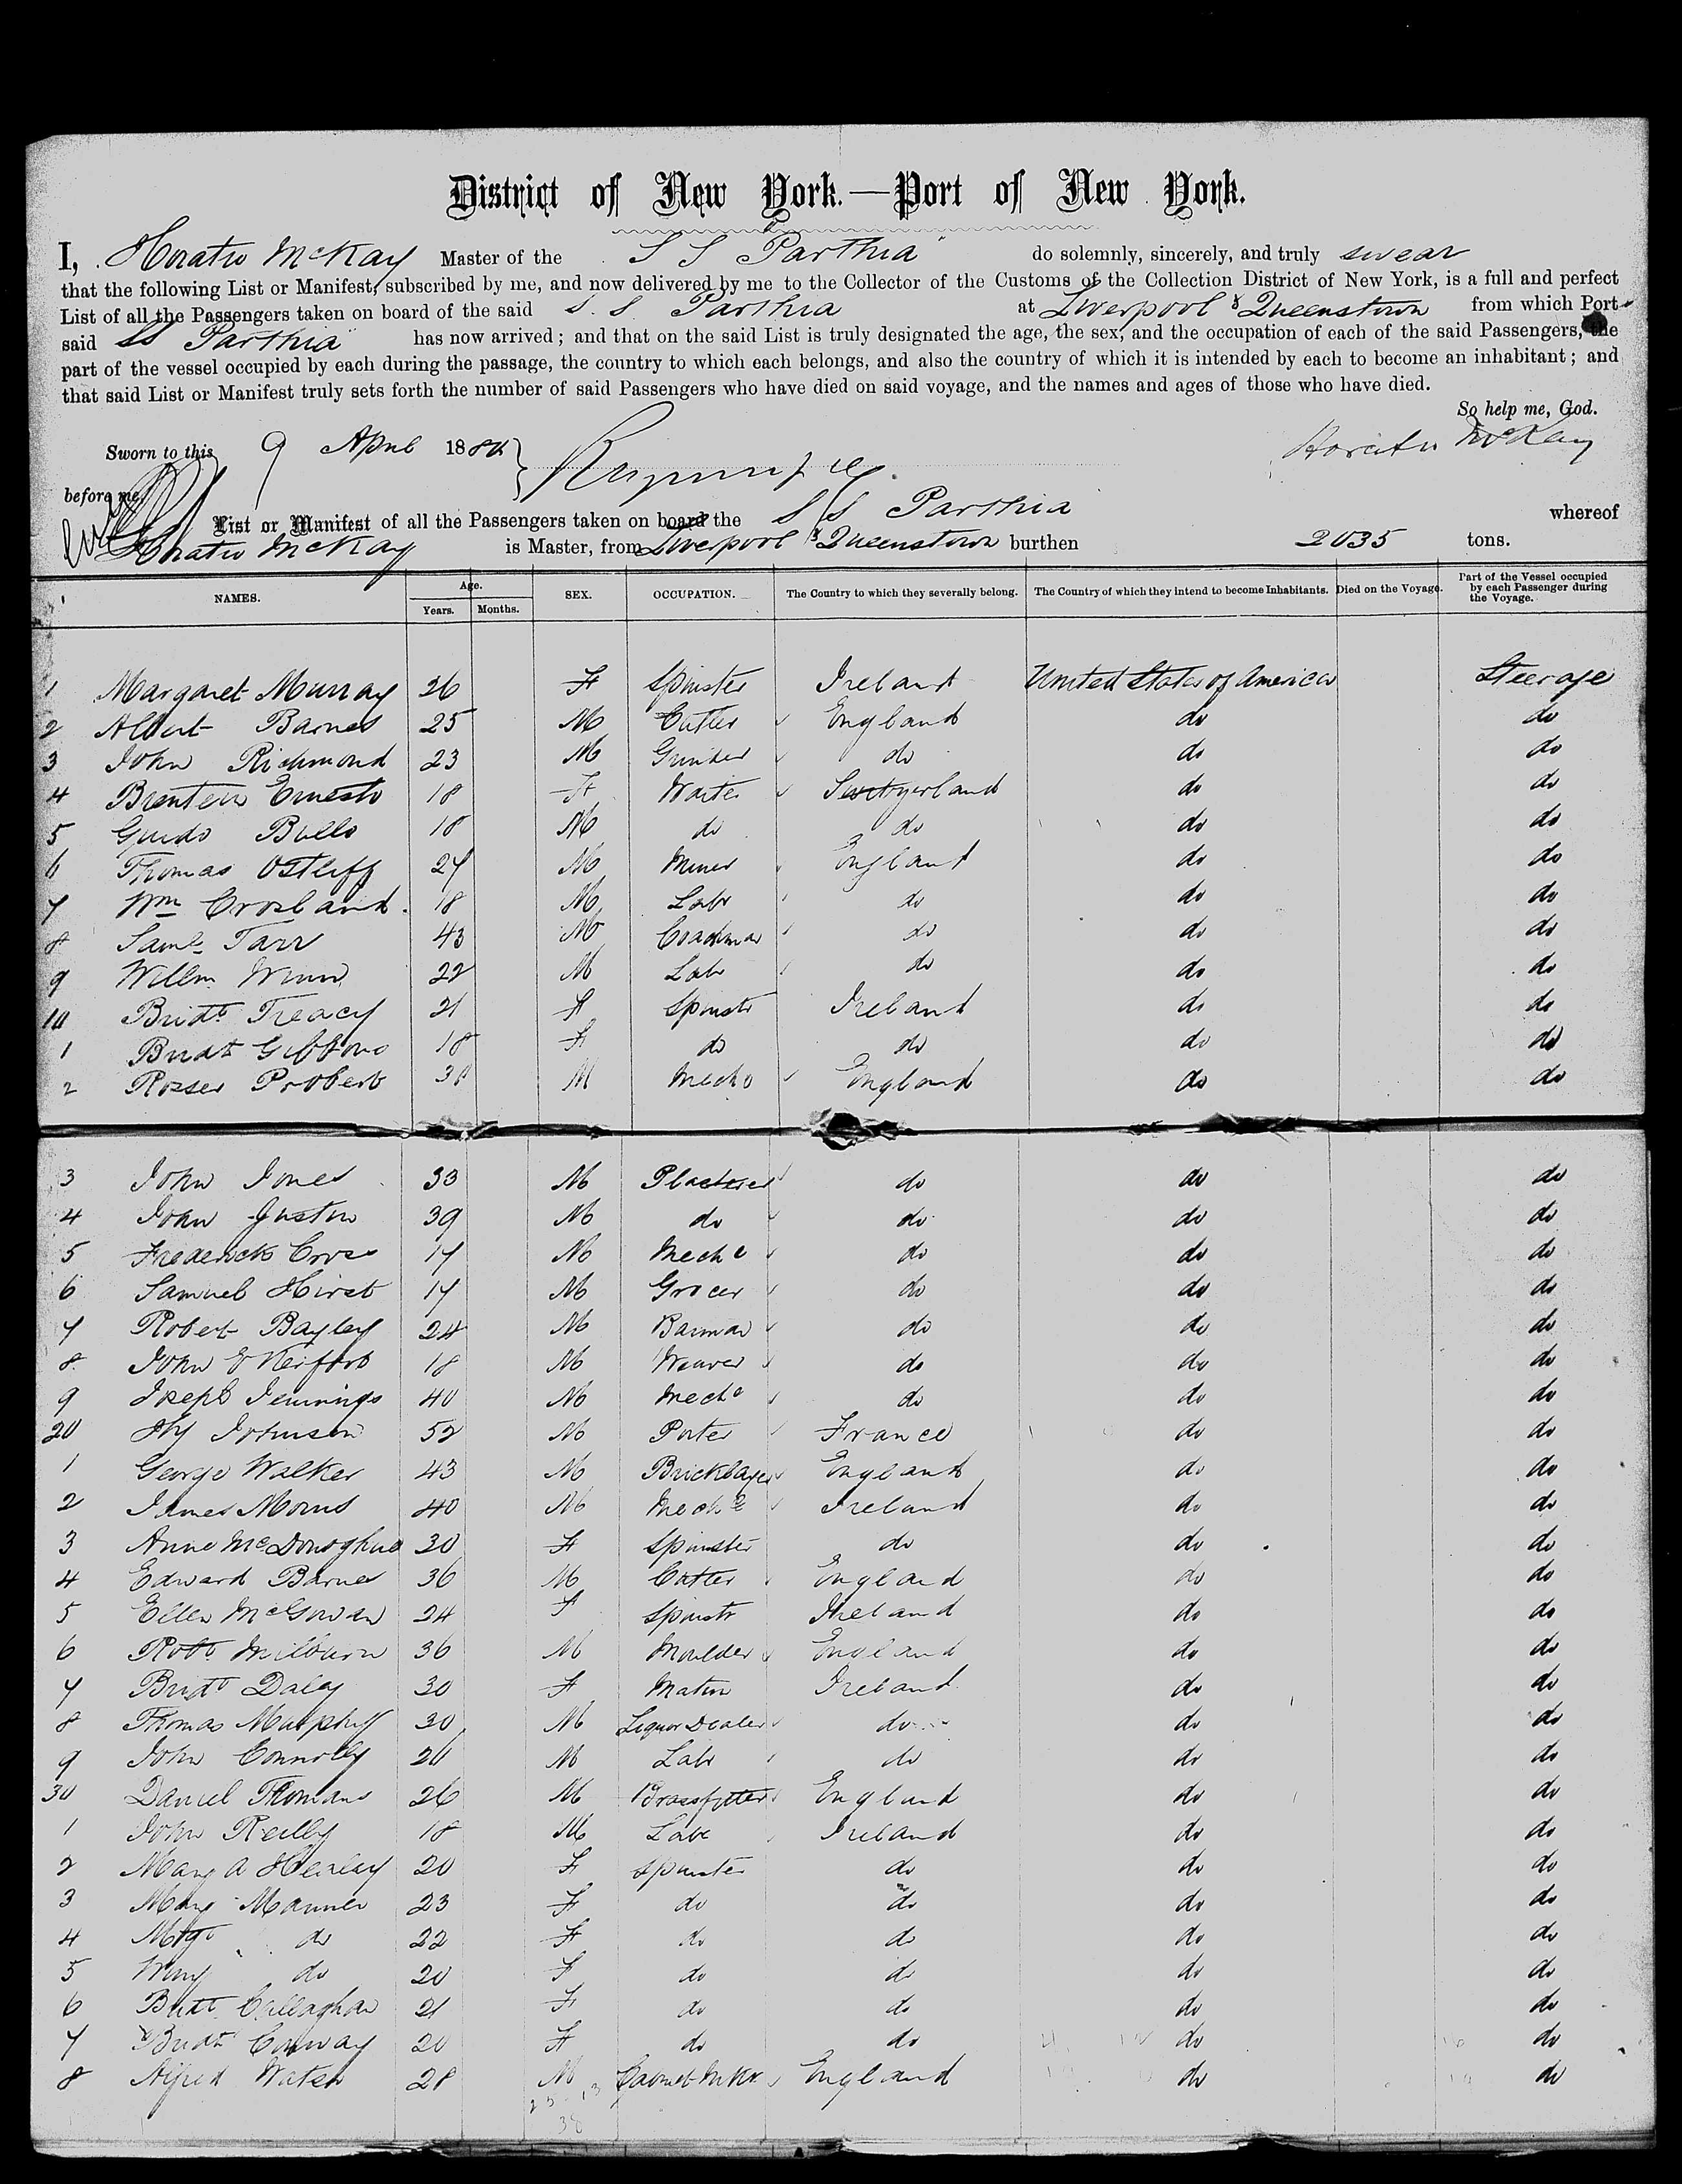 District of New York.—Port of New York.
I, Horatio McKay Master of the S S Parthia do solemnly, sincerely, and truly swear
that the following List or Manifest, subscribed by me, and now delivered by me to the Collector of the Customs of the Collection District of New York, is a full and perfect
List of all the Passengers taken on board of the said S. S. Parthia at Liverpool & Queenstown from which Port
said SS Parthia has now arrived; and that on the said List is truly designated the age, the sex, and the occupation of each of the said Passengers, the
part of the vessel occupied by each during the passage, the country to which each belongs, and also the country of which it is intended by each to become an inhabitant; and
that said List or Manifest truly sets forth the number of said Passengers who have died on said voyage, and the names and ages of those who have died.
So help me, God.
Sworn to this 9 April 188 Horatio McKay
before me,
List or Manifest of all the Passengers taken on board the S S Parthia whereof
Horatio McKay is Master, from Liverpool & Queenstown burthen 2035 tons.
NAMES. Age. Years. Months. SEX. OCCUPATION. The Country to which they severally belong. The Country of which they intend to become Inhabitants. Died on the Voyage. Part of the Vessel occupied by each Passenger during the Voyage.
1 Margaret Murray 26 F Spinster Ireland United States of America Steerage
2 Albert Barnes 25 M Cutler England do do
3 John Richmond 23 M Grinder do do do
4 Ernesto 18 F Waiter Switzerland do do
5 Guido Bullo 18 M do do do do
6 Thomas Ostliff 27 M Miner England do do
7 Wm Crosland 18 M Labr do do do
8 Saml Tarr 43 M Coachman do do do
9 Willm 22 M Labr do do do
10 Bridt Treacy 21 F Spinstr Ireland do do
1 Bridt Gibbons 18 F do do do do
2 Rosser Probert M Mechc England do do
3 John Jones 33 M Plasterer do do do
4 John Justin 39 M do do do do
5 Frederick Cross 17 M Mechc do do do
6 Samuel Hirst 17 M Grocer do do do
7 Robert Bayley 24 M Barman do do do
8 John 18 M Weaver do do do
9 Joseph Jennings 40 M Mechc do do do
20 Hy Johnson 52 M Porter France do do
1 George Walker 43 M Bricklayer England do do
2 James Morris 40 M Mechc Ireland do do
3 Anne McDonoghue 30 F Spinster do do do
4 Edward Barnes 36 M Cutler England do do
5 Ellen McGowan 24 F Spinstr Ireland do do
6 Robt Milburn 36 M Moulder England do do
7 Bridt Daley 30 F Matron Ireland do do
8 Thomas Murphy 30 M Liquor Dealer do do do
9 John Connolly 20 M Labr do do do
30 Daniel Thomas 26 M Brassfitter England do do
1 John Reilly 18 M Labr Ireland do do
2 Mary A Henley 20 F Spinster do do do
3 Mary Mannen 23 F do do do do
4 Mgt do 22 F do do do do
5 do 20 F do do do do
6 Bridt Callaghan 21 F do do do do
7 Bridt Conway 20 F do do do do
8 Alfred Watson 28 M Cabinet Mkr England do do
38